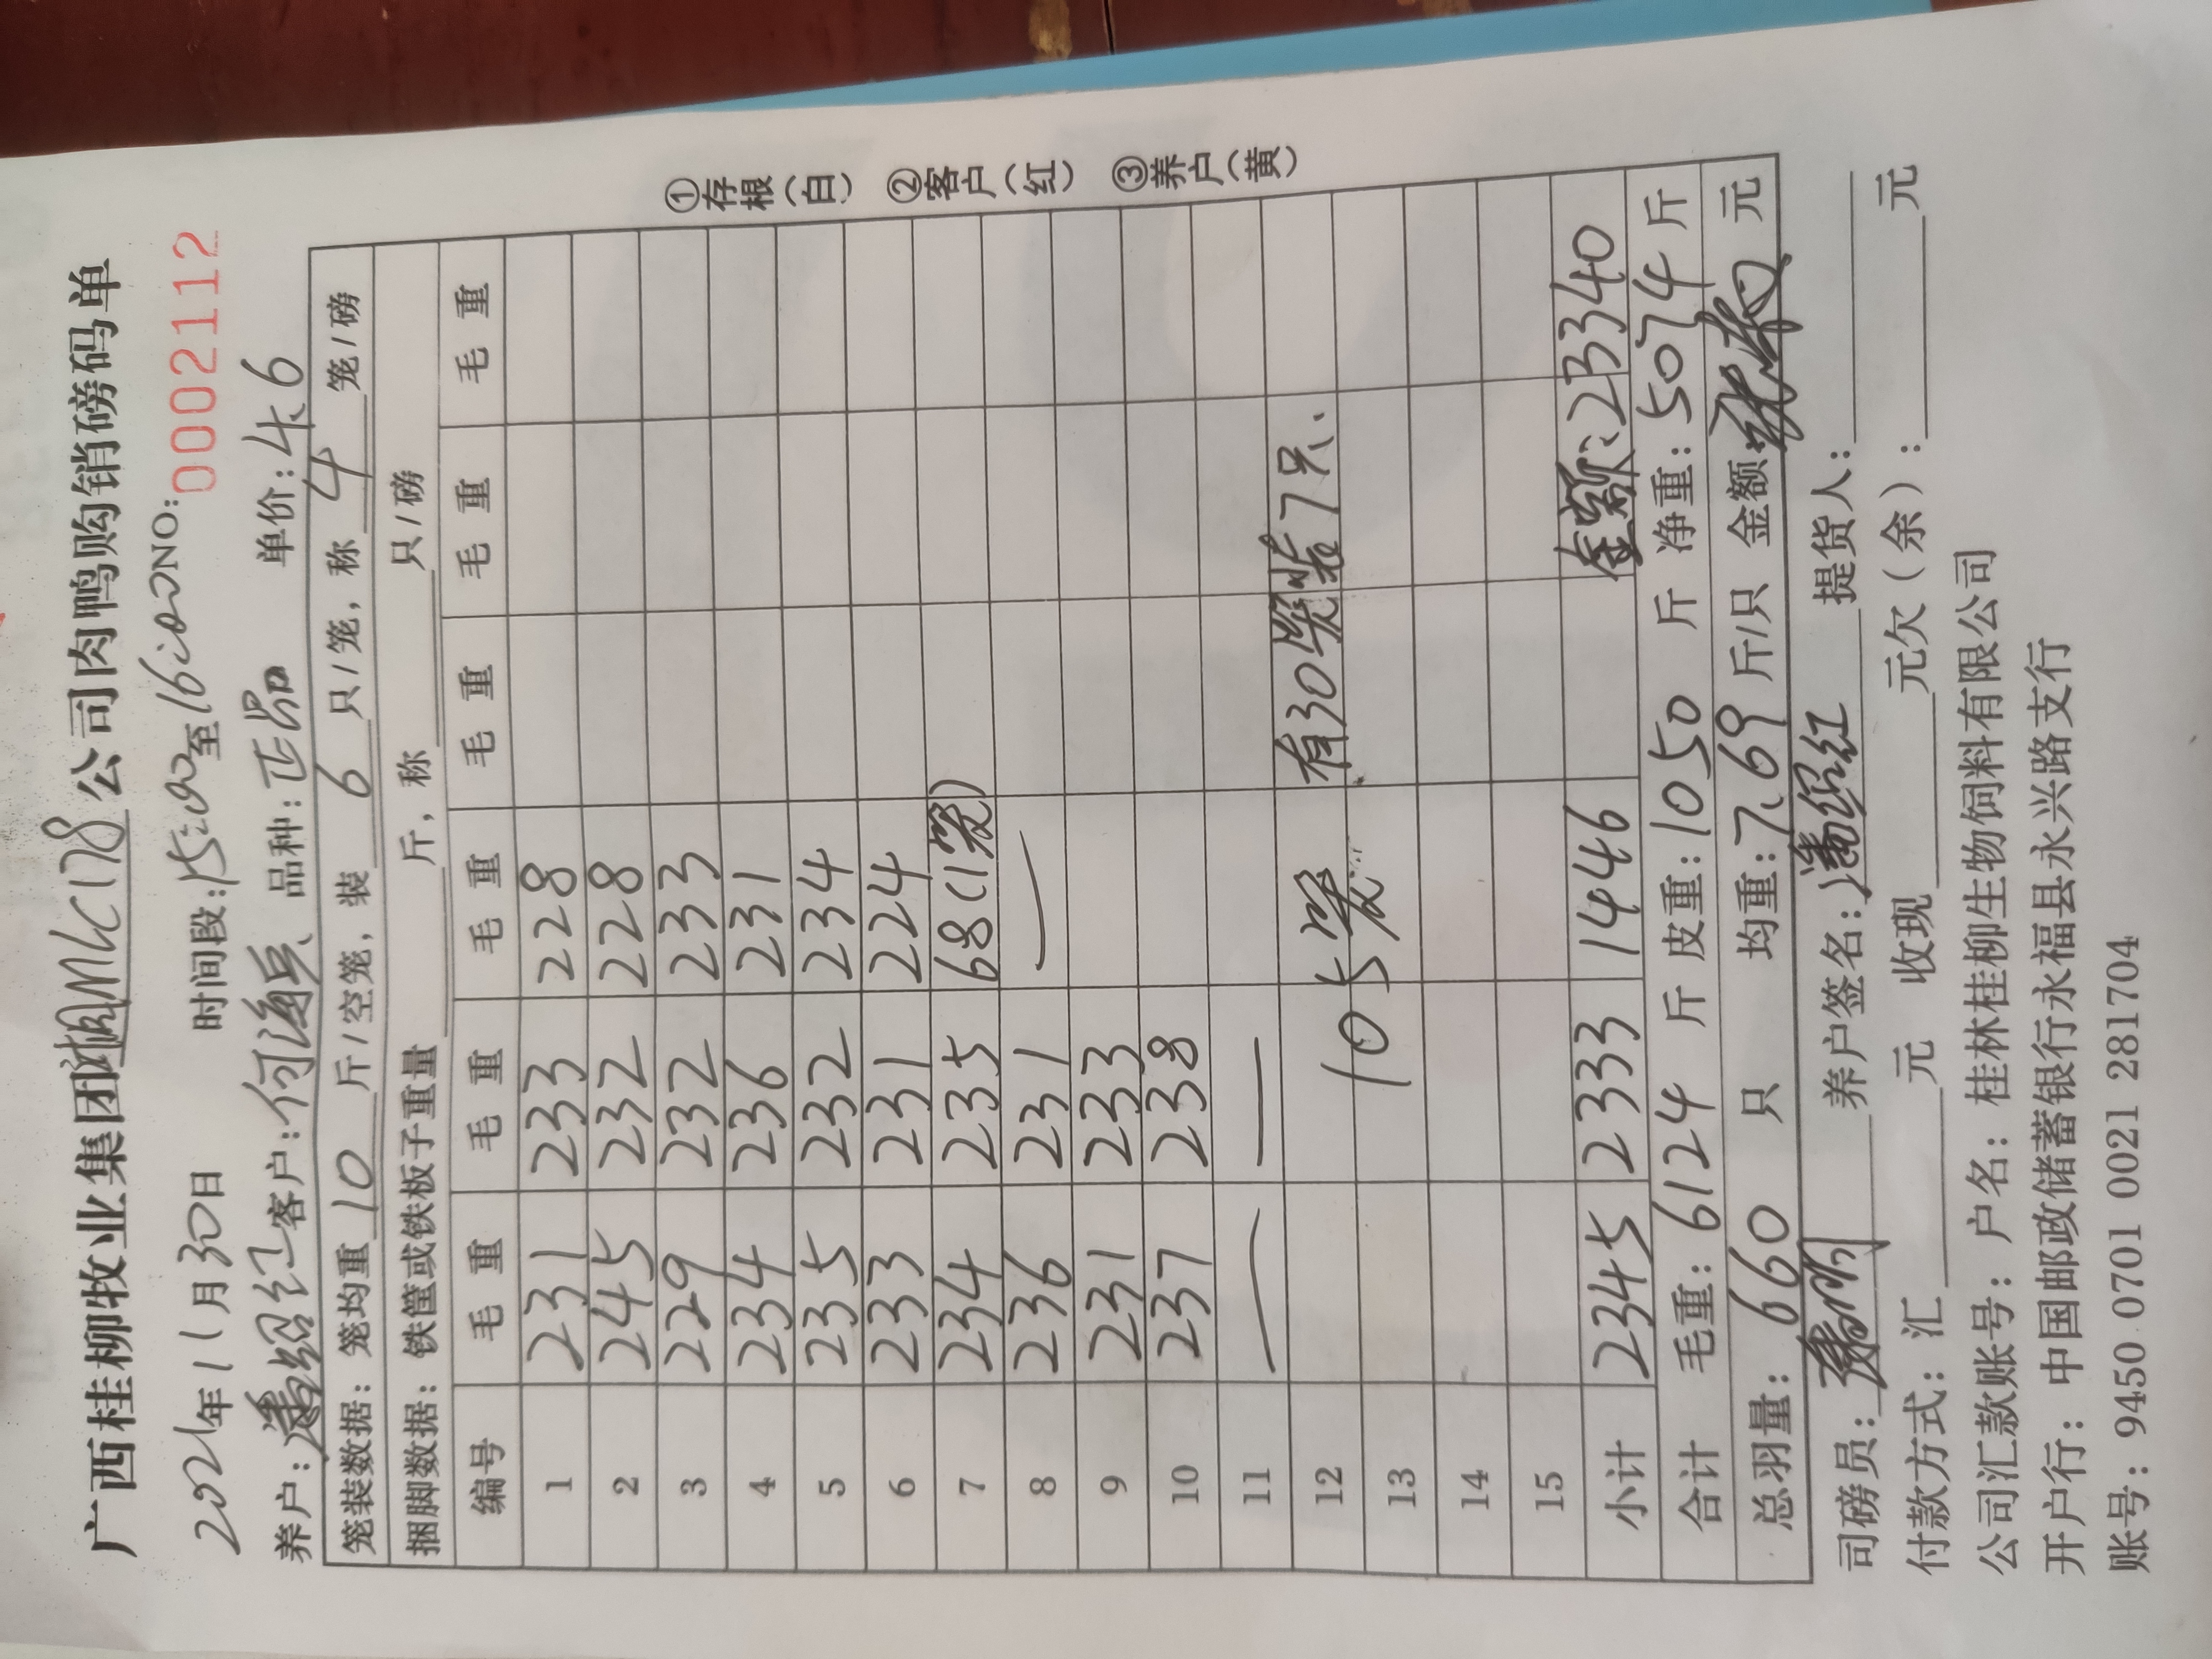 广西桂柳牧业集团 公司肉鸭购销磅码单
2021年11月30日 时间段:15:00至16:00 NO: 0002112
养户:潘绍红 客户:何海兵 品种:正品 单价:4.6
笼装数据: 笼均重 10 斤/空笼, 装 6 只/笼, 称 4 笼/磅
捆脚数据: 铁筐或铁板子重量 斤, 称 只/磅
编号 毛重 毛重 毛重 毛重 毛重 毛重
1 231 233 228
2 245 232 228
3 229 232 233
4 234 236 231
5 235 232 234
6 233 231 224
7 234 235 68(1笼)
8 236 231 —
9 231 233
10 237 238
11 — —
12 有30笼装7只、
13 105笼
14
15
小计 2345 2333 1446 金额:23340
合计 毛重:6124 斤 皮重:1050 斤 净重:5074 斤
总羽量: 660 只 均重:7.69 斤/只 金额: 元
司磅员: 养户签名:潘绍红 提货人:
付款方式: 汇 元 收现 元欠(余): 元
公司汇款账号: 户名: 桂林桂柳生物饲料有限公司
开户行: 中国邮政储蓄银行永福县永兴路支行
账号: 9450 0701 0021 281704
①存根(白) ②客户(红) ③养户(黄)